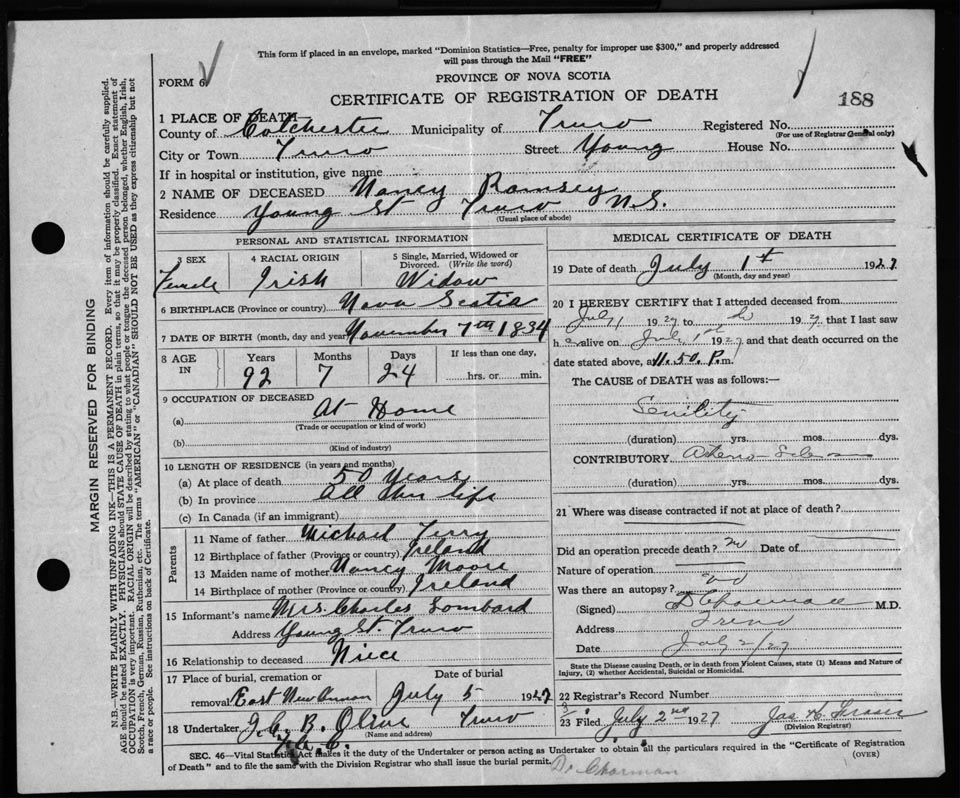 This form if placed in an envelope, marked "Dominion Statistics—Free, penalty for improper use $300," and properly addressed
will pass through the Mail "FREE"
FORM 6
PROVINCE OF NOVA SCOTIA
CERTIFICATE OF REGISTRATION OF DEATH
188
1 PLACE OF DEATH—
County of Colchester Municipality of Truro Registered No.
(For use of Registrar General only)
City or Town Truro Street Young House No.
If in hospital or institution, give name
2 NAME OF DECEASED Nancy Ramsey
Residence Young St Truro N.S.
(Usual place of abode)
PERSONAL AND STATISTICAL INFORMATION
3 SEX 4 RACIAL ORIGIN 5 Single, Married, Widowed or
Divorced. (Write the word)
Female Irish Widow
6 BIRTHPLACE (Province or country) Nova Scotia
7 DATE OF BIRTH (month, day and year) November 7th 1834
8 AGE IN Years Months Days If less than one day,
92 7 24 hrs. or min.
9 OCCUPATION OF DECEASED
(a) At Home
(Trade or occupation or kind of work)
(b)
(Kind of industry)
10 LENGTH OF RESIDENCE (in years and months)
(a) At place of death 50 Years
(b) In province All her life
(c) In Canada (if an immigrant)
Parents
11 Name of father Michael Terry
12 Birthplace of father (Province or country) Ireland
13 Maiden name of mother Nancy Moore
14 Birthplace of mother (Province or country) Ireland
15 Informant's name Mrs. Charles Lombard
Address Young St. Truro
16 Relationship to deceased Niece
17 Place of burial, cremation or Date of burial
removal East New Annan July 5 1927
18 Undertaker J.C.B. Olive Truro
(Name and address)
MEDICAL CERTIFICATE OF DEATH
19 Date of death July 1st 1927
(Month, day and year)
20 I HEREBY CERTIFY that I attended deceased from
July 1 1927 to 1927 that I last saw
h alive on July 1st 1927 and that death occurred on the
date stated above, at 11.50 P.m.
The CAUSE of DEATH was as follows:—
Senility
(duration) yrs. mos. dys.
CONTRIBUTORY Arterio-Sclerosis
(duration) yrs. mos. dys.
21 Where was disease contracted if not at place of death?
Did an operation precede death? no Date of
Nature of operation
Was there an autopsy? no
(Signed) M.D.
Address Truro
Date July 2/27
State the Disease causing Death, or in death from Violent Causes, state (1) Means and Nature of
Injury, (2) whether Accidental, Suicidal or Homicidal.
22 Registrar's Record Number
23 Filed July 2nd 1927 Jas H Fraser
(Division Registrar)
SEC. 46—Vital Statistics Act makes it the duty of the Undertaker or person acting as Undertaker to obtain all the particulars required in the "Certificate of Registration
of Death" and to file the same with the Division Registrar who shall issue the burial permit.
(OVER)
MARGIN RESERVED FOR BINDING
N.B.—WRITE PLAINLY WITH UNFADING INK—THIS IS A PERMANENT RECORD. Every item of information should be carefully supplied.
AGE should be stated EXACTLY. PHYSICIANS should STATE CAUSE OF DEATH in plain terms, so that it may be properly classified. Exact statement of
OCCUPATION is very important. RACIAL ORIGIN will be described by stating to what people or tongue the deceased person belonged, whether English, Irish,
Scotch, French, German, Russian, Ruthenian, etc. The terms "AMERICAN" or "CANADIAN" SHOULD NOT BE USED as they express citizenship but not
a race or people. See instructions on back of Certificate.